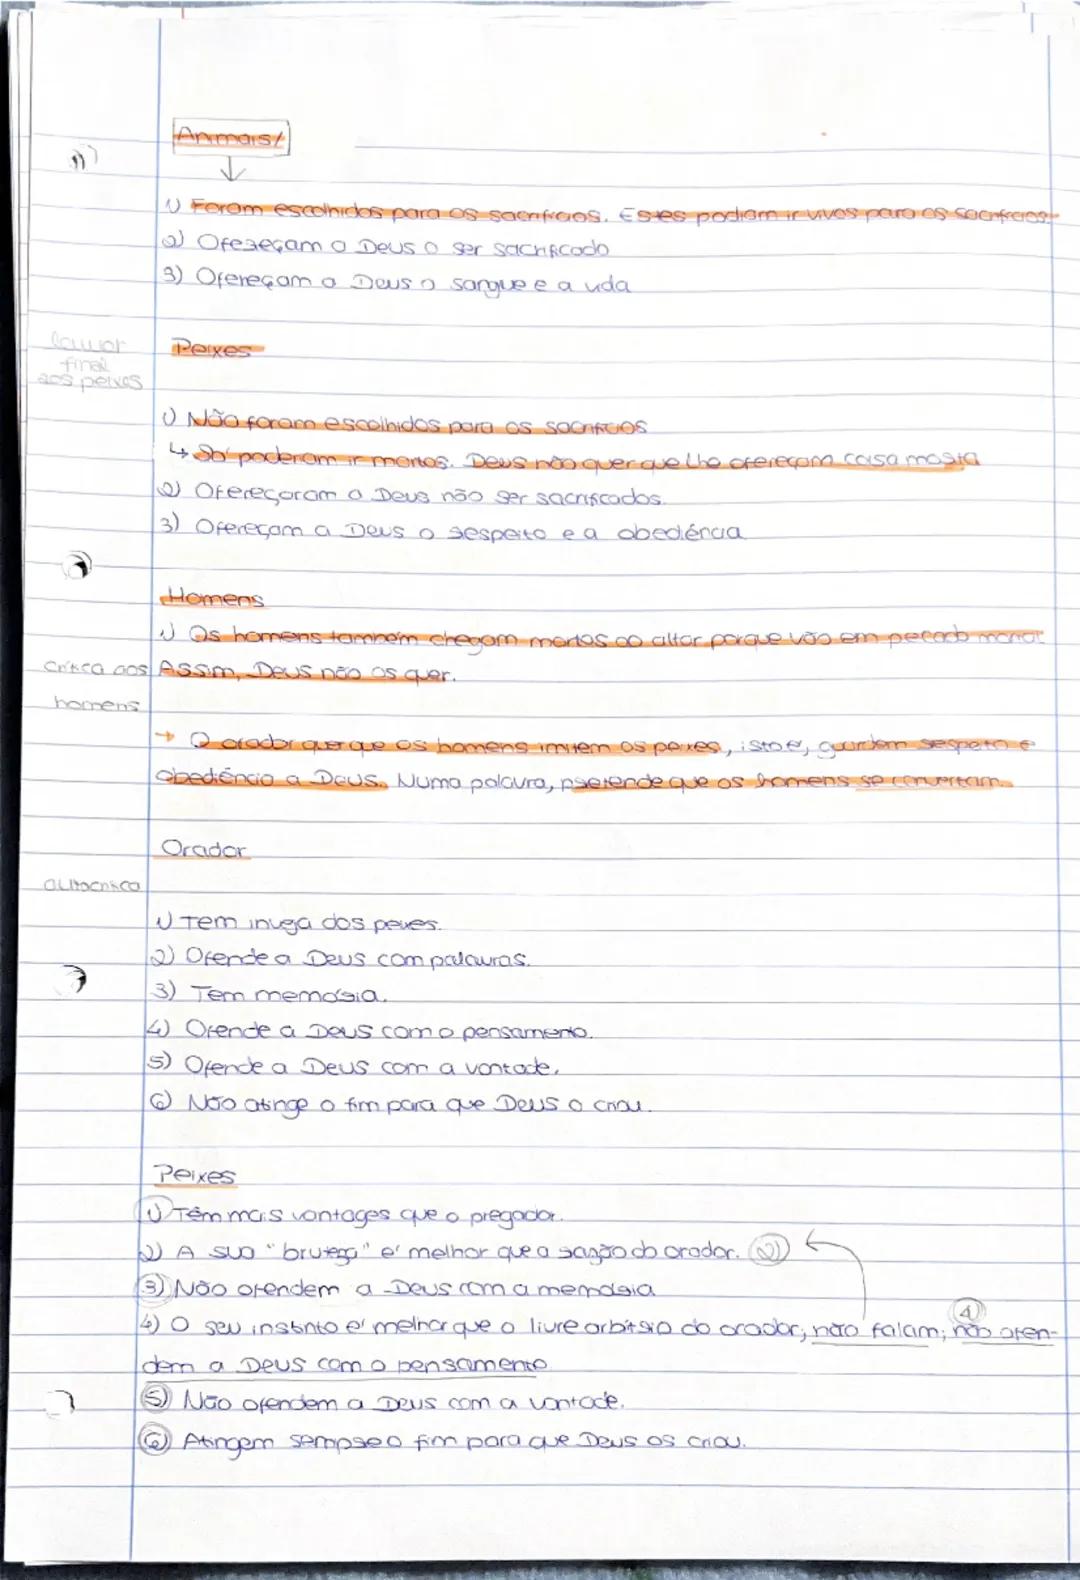 Animais/
1) Foram escolhidos para os sacrifícios. Estes podiam ir vivos para os sacrifícios.
2) Ofereçam a Deus o ser sacrificado
3) Ofereçam a Deus o sangue e a vida
louvor
final
aos peixes
Peixes
1) Não foram escolhidos para os sacrifícios
↳ Só poderam ir mortos. Deus não quer que lhe ofereçam coisa morta
2) Ofereçaram a Deus não ser sacrificados.
3) Ofereçam a Deus o respeito e a obediência
Homens
1) Os homens também chegam mortos ao altar porque vão em pecado mortal.
Crítica aos
homens
Assim, Deus não os quer.
→ O orador quer que os homens imitem os peixes, isto é, guardem respeito e
obediência a Deus. Numa palavra, pretende que os homens se convertam.
Orador
autocrítica
1) Tem inveja dos peixes.
2) Ofende a Deus com palavras.
3) Tem memória.
4) Ofende a Deus com o pensamento.
5) Ofende a Deus com a vontade.
6) Não atinge o fim para que Deus o criou.
Peixes
1) Têm mais vantages que o pregador.
2) A sua "bruteza" é melhor que a razão do orador. 2)
3) Não ofendem a Deus com a memória
4)
4) O seu instinto é melhor que o livre arbitrio do orador; não falam; não ofen-
dem a Deus com o pensamento
5) Não ofendem a Deus com a vontade.
6) Atingem sempre o fim para que Deus os criou.